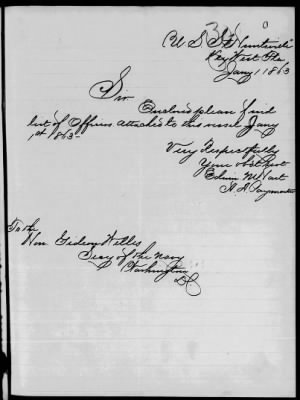 U S S "Huntsville"
Key West Fla
Jany 1 1863
Sir
Enclosed please find
list of Officers attached to this vessel Jany
1st 1863
Very Respectfully
Your obt Svt
Edwin M Hart
A. A. Paymaster
To the
Hon. Gideon Welles
Secy of the Navy
Washington
DC